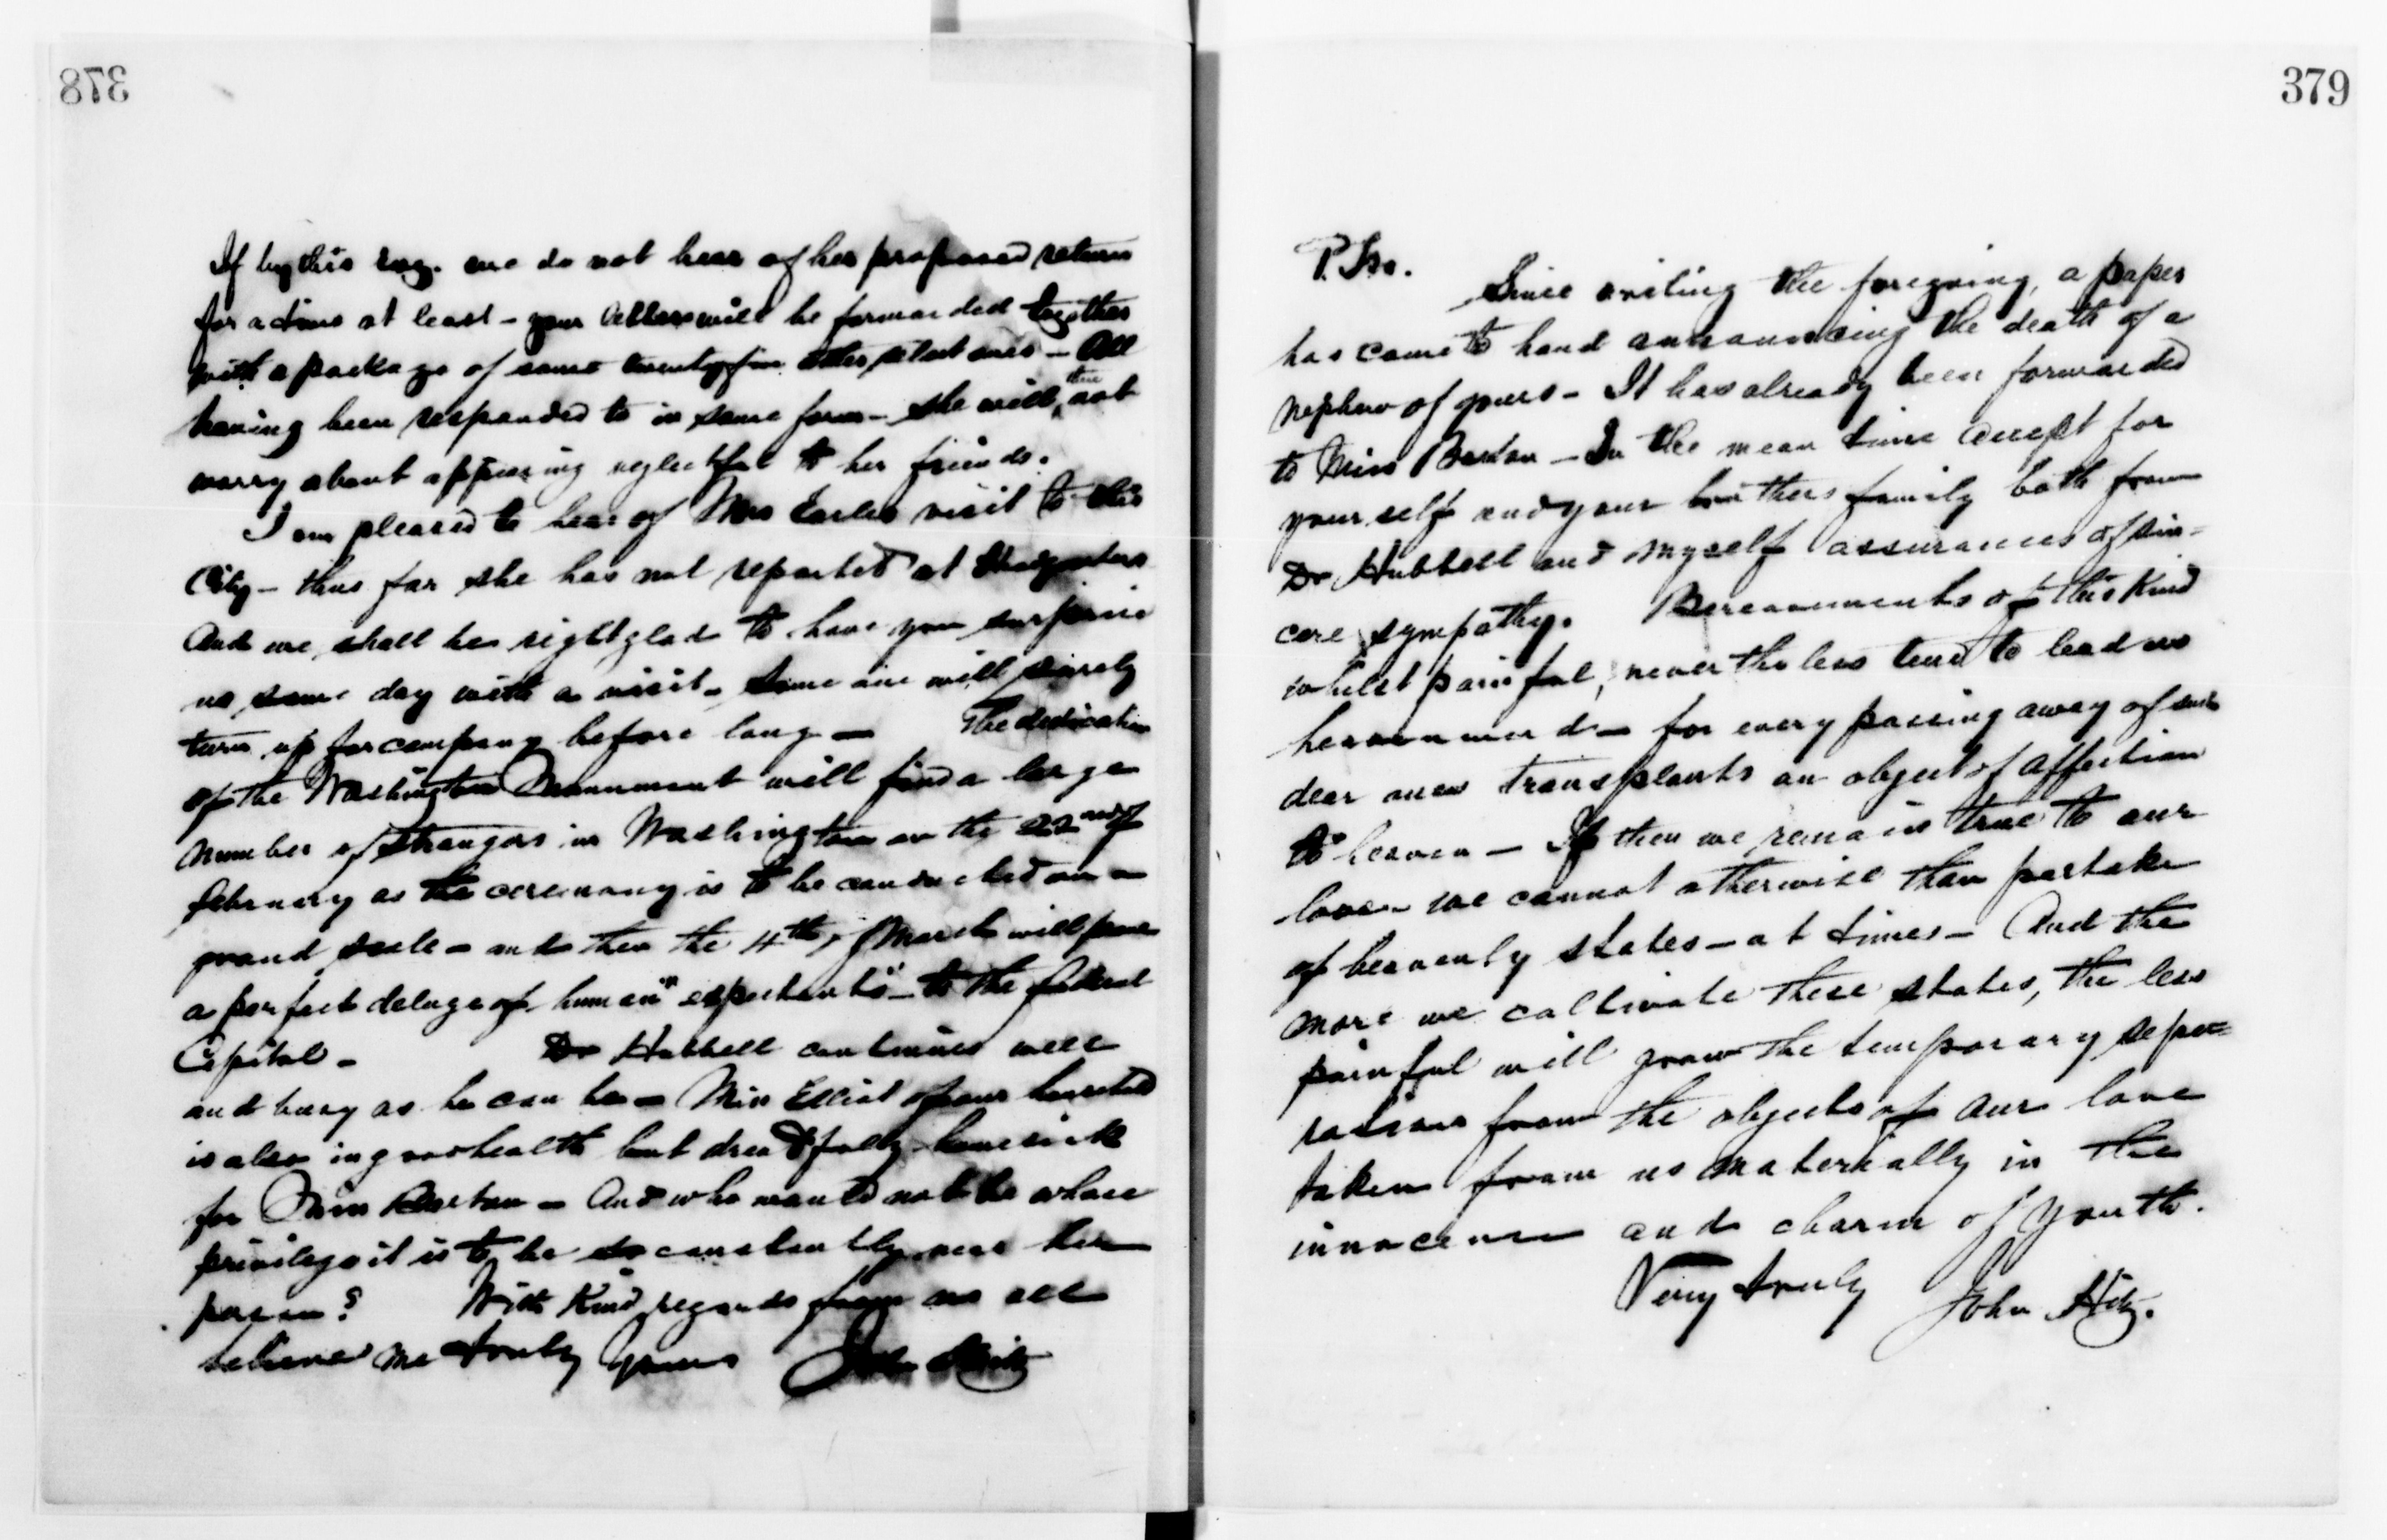 378
If by this eve'g. we do not hear of her proposed return
for a time at least - your letters will be forwarded together
with a package of some twenty five other select ones - All
having been responded to in some form - she will then not
worry about appearing neglectful to her friends.
I am pleased to hear of Mrs Earles visit to this
City - thus far she has not reported at Headquarters
And we shall be right glad to have you surprise
us some day with a visit - Some one will surely
turn up for company before long - The dedication
of the Washington Monument will find a large
number of strangers in Washington on the 22nd of
February as the ceremony is to be conducted on a
grand scale - and then the 4th of March will prove
a perfect deluge of human "expectants" - to the federal
Capital - Dr Hubbell continues well
and busy as he can be - Miss Elliot of our household
is also in good health but dreadfully homesick
for Miss Barton - And who would not be whose
privilege it is to be so constantly near her
person? With Kind regards from us all
believe me truly Yours John Hitz
379
P.S. Since writing the foregoing, a paper
has come to hand announcing the death of a
nephew of yours - It has already been forwarded
to Miss Barton - In the mean time accept for
yourself and your brothers family both from
Dr Hubbell and myself assurances of sin-
cere sympathy. Bereavements of this Kind
whilst painful, nevertheless tend to lead us
heavenward - for every passing away of such
dear ones transplants an object of affection
to heaven - If then we remain true to our
love - we cannot otherwise than partake
of heavenly states - at times - And the
more we cultivate these states, the less
painful will grow the temporary sepa=
rations from the objects of our love
taken from us materially in the
innocence and charm of youth.
Very truly John Hitz.